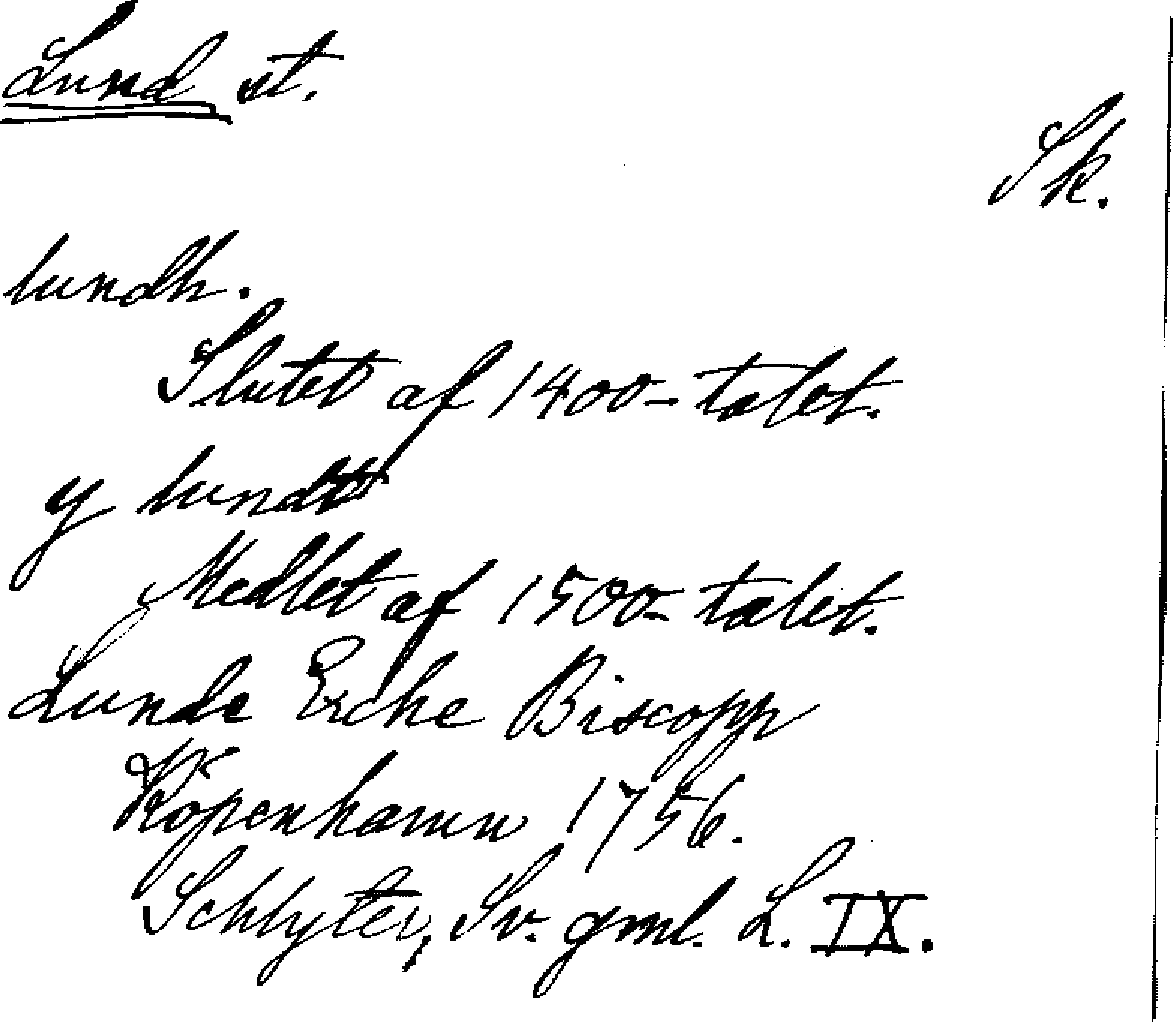 Lund st.
Sk.
lundh.
Slutet af 1400-talet.
y
Medlet af 1500-talet.
Lunde Erche Biscopp
Köpenhamn 1756.
Schlyter, Sv. gml. L. IX.